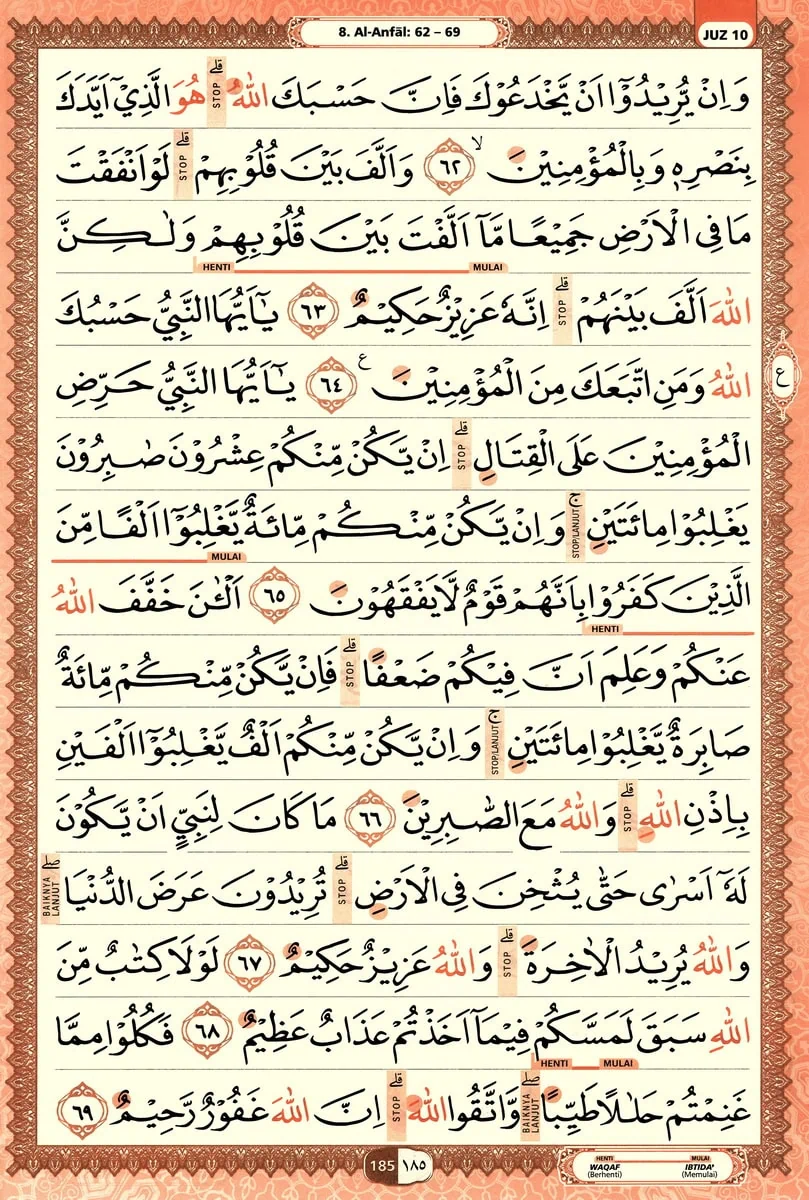 8. Al-Anfāl: 62 – 69
JUZ 10
وَاِنْ يُّرِيْدُوْٓا اَنْ يَّخْدَعُوْكَ فَاِنَّ حَسْبَكَ اللّٰهُ ۗ STOP هُوَ الَّذِيْٓ اَيَّدَكَ
بِنَصْرِهٖ وَبِالْمُؤْمِنِيْنَ ۙ ٦٢ وَاَلَّفَ بَيْنَ قُلُوْبِهِمْ ۗ STOP لَوْ اَنْفَقْتَ
مَا فِى الْاَرْضِ جَمِيْعًا مَّآ اَلَّفْتَ بَيْنَ قُلُوْبِهِمْ وَلٰكِنَّ
HENTI MULAI
اللّٰهَ اَلَّفَ بَيْنَهُمْ ۗ STOP اِنَّهٗ عَزِيْزٌ حَكِيْمٌ ٦٣ يٰٓاَيُّهَا النَّبِيُّ حَسْبُكَ
اللّٰهُ وَمَنِ اتَّبَعَكَ مِنَ الْمُؤْمِنِيْنَ ࣖ ٦٤ يٰٓاَيُّهَا النَّبِيُّ حَرِّضِ
ع
الْمُؤْمِنِيْنَ عَلَى الْقِتَالِ ۗ STOP اِنْ يَّكُنْ مِّنْكُمْ عِشْرُوْنَ صٰبِرُوْنَ
يَغْلِبُوْا مِائَتَيْنِ ۚ STOP/LANJUT وَاِنْ يَّكُنْ مِّنْكُمْ مِّائَةٌ يَّغْلِبُوْٓا اَلْفًا مِّنَ
MULAI
الَّذِيْنَ كَفَرُوْا بِاَنَّهُمْ قَوْمٌ لَّا يَفْقَهُوْنَ ٦٥ اَلْـٰٔنَ خَفَّفَ اللّٰهُ
HENTI
عَنْكُمْ وَعَلِمَ اَنَّ فِيْكُمْ ضَعْفًا ۗ STOP فَاِنْ يَّكُنْ مِّنْكُمْ مِّائَةٌ
صَابِرَةٌ يَّغْلِبُوْا مِائَتَيْنِ ۚ STOP/LANJUT وَاِنْ يَّكُنْ مِّنْكُمْ اَلْفٌ يَّغْلِبُوْٓا اَلْفَيْنِ
بِاِذْنِ اللّٰهِ ۗ STOP وَاللّٰهُ مَعَ الصّٰبِرِيْنَ ٦٦ مَا كَانَ لِنَبِيٍّ اَنْ يَّكُوْنَ
لَهٗٓ اَسْرٰى حَتّٰى يُثْخِنَ فِى الْاَرْضِ ۗ STOP تُرِيْدُوْنَ عَرَضَ الدُّنْيَا ۖ BAIKNYA LANJUT
وَاللّٰهُ يُرِيْدُ الْاٰخِرَةَ ۗ STOP وَاللّٰهُ عَزِيْزٌ حَكِيْمٌ ٦٧ لَوْلَا كِتٰبٌ مِّنَ
اللّٰهِ سَبَقَ لَمَسَّكُمْ فِيْمَآ اَخَذْتُمْ عَذَابٌ عَظِيْمٌ ٦٨ فَكُلُوْا مِمَّا
HENTI MULAI
غَنِمْتُمْ حَلٰلًا طَيِّبًا ۖ BAIKNYA LANJUT وَّاتَّقُوا اللّٰهَ ۗ STOP اِنَّ اللّٰهَ غَفُوْرٌ رَّحِيْمٌ ٦٩
185 ١٨٥
HENTI MULAI
WAQAF IBTIDA'
(Berhenti) (Memulai)